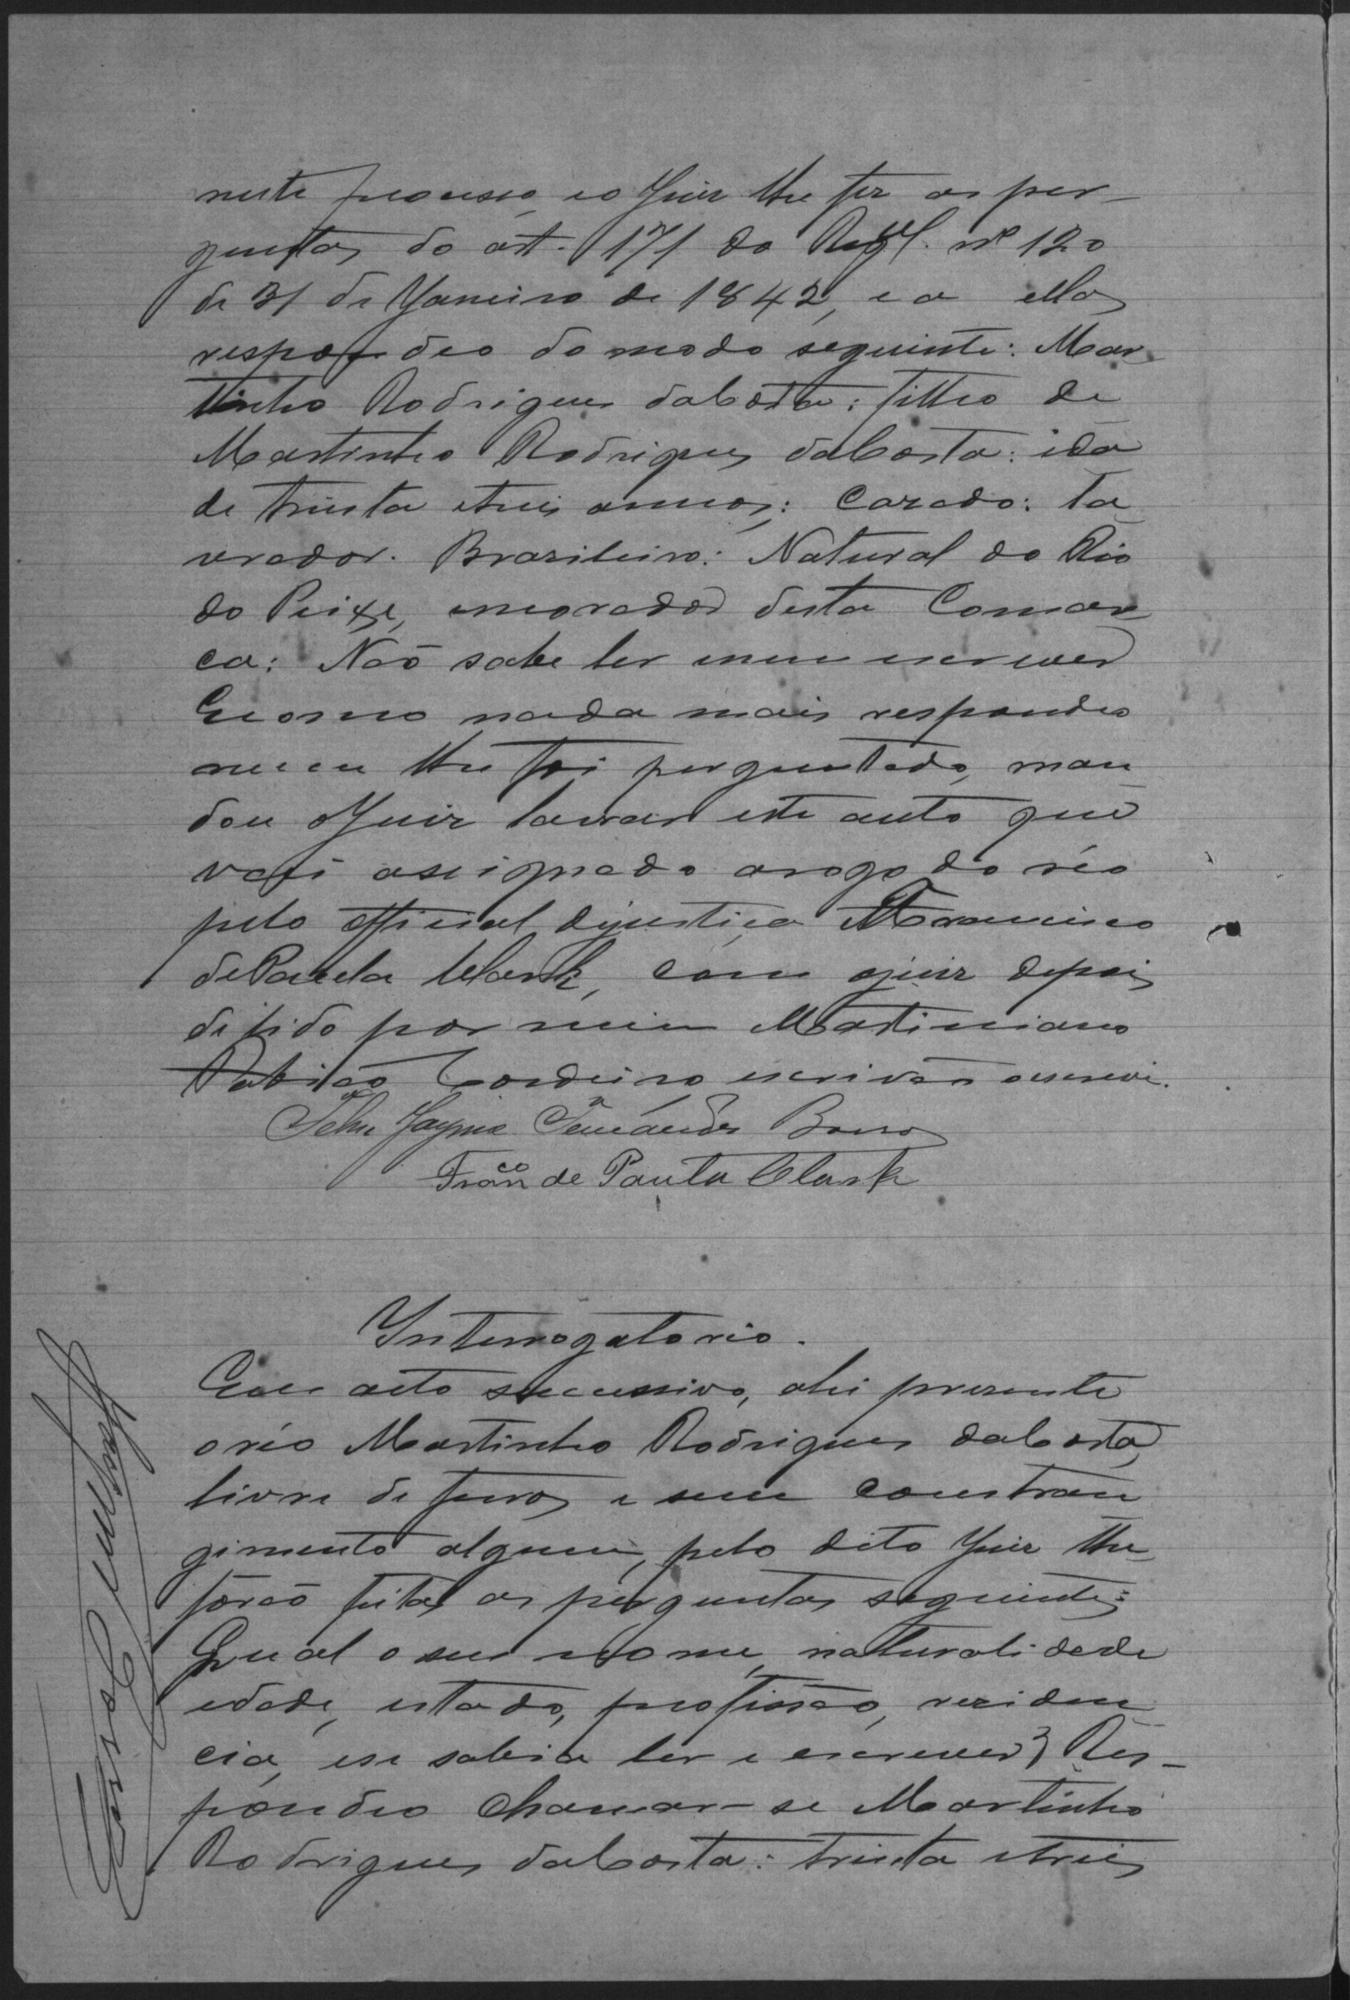 neste processo, eo Juiz lhe fez as per-
guntas do art. 171 do Regl. nº 120
de 31 de Janeiro de 1842, e a ellas
respondeo do modo seguinte: Mar
tinho Rodrigues daCosta: filho de
Martinho Rodrigues daCosta: ida
de trinta etres annos: Cazado: la
vrador. Brazileiro: Natural do Rio
do Peixe, emorador desta Comar
ca: Não sabe ler enem escrever
Ecomo nada mais respondeo
nem lhe foi perguntado, man
dou oJuiz lavrar este auto que
vai assignado arogo do réo
pelo official dejustiça Francisco
dePaula Clark, com ojuiz depois
de lido por mim Martiniano
Cordeiro escrivão oescrevi.
Jayme Fernandes Barros
Franco de Paula Clark
Interrogatorio.
Em acto successivo, ahi presente
oréo Martinho Rodrigues daCosta,
livre de ferros e sem constran
gimento algum, pelo dito Juiz lhe
forão feitas as perguntas seguintes:
Qual o seu nome, naturalidade
edade, estado, profissão, reziden
cia, ese sabia ler e escrever? Res-
pondeo chamar-se Martinho
Rodrigues daCosta: trinta etres